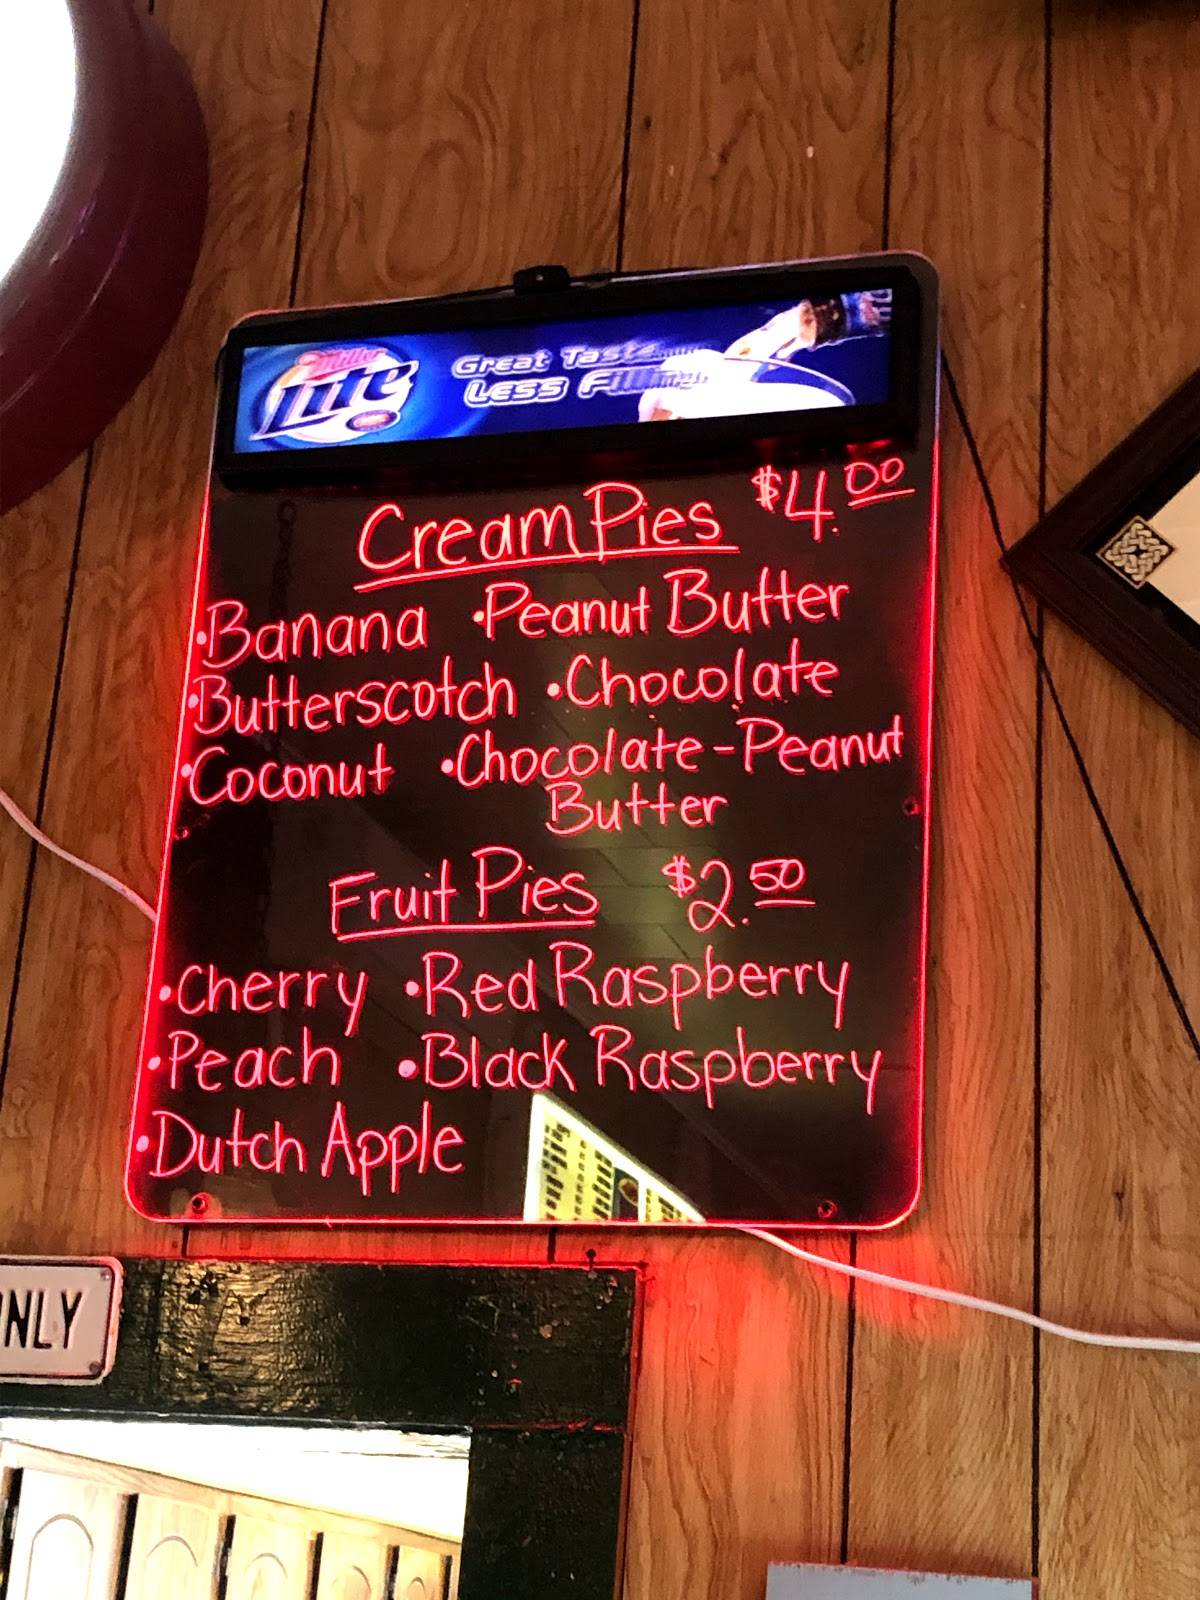 Miller
Lite
Great Taste
Less Filling
Cream Pies $4.00
•Banana •Peanut Butter
•Butterscotch •Chocolate
•Coconut •Chocolate-Peanut
Butter
Fruit Pies $2.50
•Cherry •Red Raspberry
•Peach •Black Raspberry
•Dutch Apple
NLY